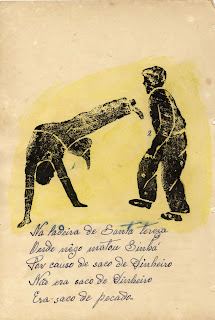 1
2
Na ladeira de Santa tereza
nêgo matou Sinhá
Por causo de saco de dinheiro
Não era saco de dinheiro
Era saco de pecado.